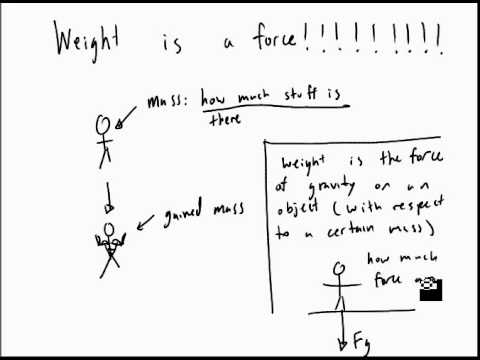 Weight is a force!!!!!!!!!
mass: how much stuff is
there
gained mass
Weight is the force
of gravity on an
object (with respect
to a certain mass)
how much
force
Fg